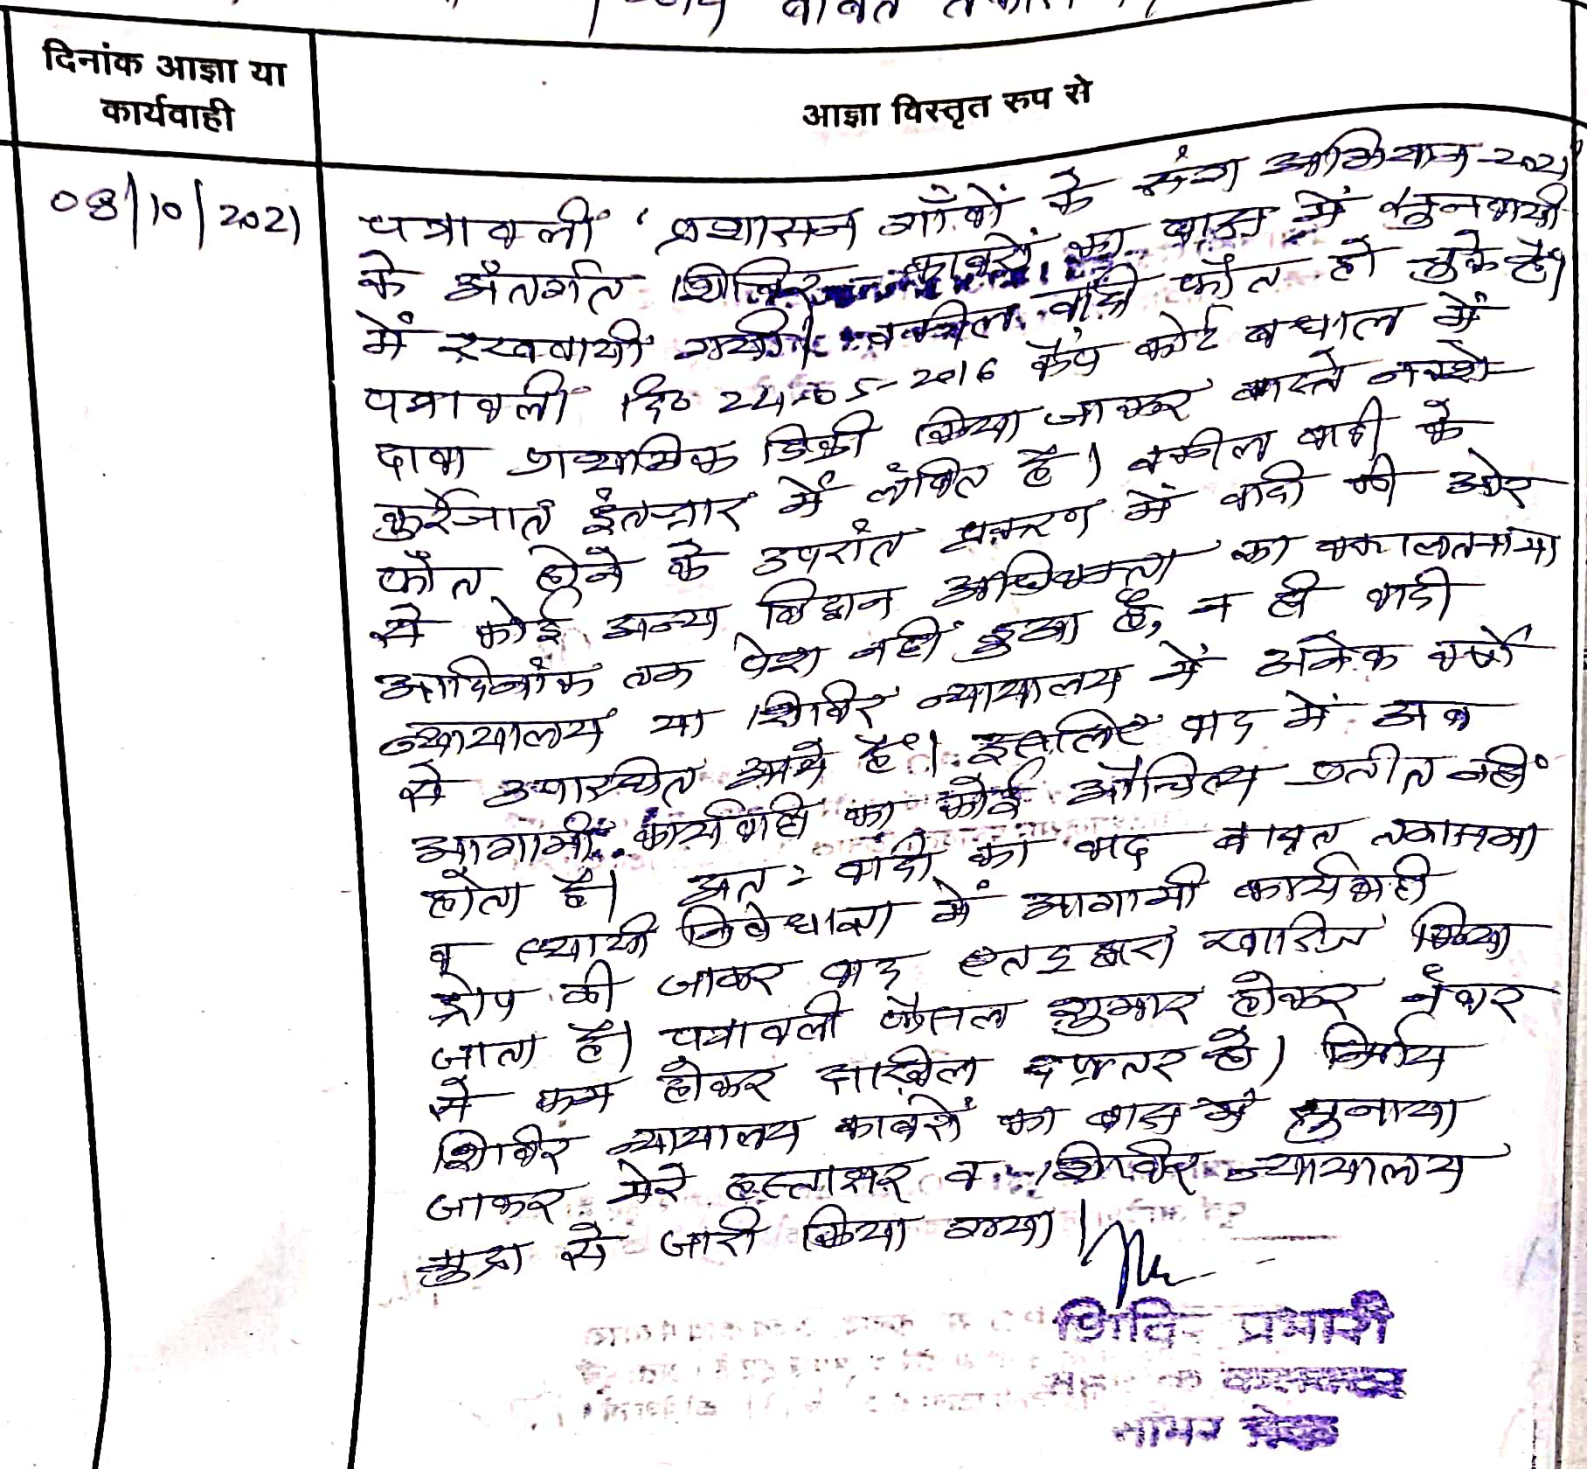 बाबत तकास
दिनांक आज्ञा या
कार्यवाही
आज्ञा विस्तृत रुप से
08/10/2021
पत्रावली 'प्रशासन गाँवों के संग अभियान-2021'
के अंतर्गत शिविर काबरों का बास में सुनवायी
में रखवायी गयी। वकील वादी फौत हो चुके हैं।
पत्रावली दि० 24-05-2016 कैंप कोर्ट बधाल में
दावा प्राथमिक डिक्री किया जाकर वास्ते नक्शे
कुर्रेजात इंतजार में लंबित है। वकील वादी के
फौत होने के उपरांत प्रकरण में वादी की ओर
से कोई अन्य विद्वान अधिवक्ता का वकालतनामा
आदिनांक तक पेश नहीं हुआ है, न ही वादी
न्यायालय या शिविर न्यायालय में अनेक वर्षों
से उपस्थित आये हैं। इसलिए वाद में अब
आगामी कार्यवाही का कोई औचित्य प्रतीत नहीं
होता है। अतः वादी का वाद बाबत तकासमा
व स्थायी निषेधाज्ञा में आगामी कार्यवाही
ड्रॉप की जाकर वाद एतद्द्वारा खारिज किया
जाता है। पत्रावली फैसल शुमार होकर नंबर
से कम होकर दाखिल दफ्तर हो। निर्णय
शिविर न्यायालय काबरों का बास में सुनाया
जाकर मेरे हस्ताक्षर व शिविर न्यायालय
मुद्रा से जारी किया गया।
शिविर प्रभारी
कलक्टर
सांभर लेक